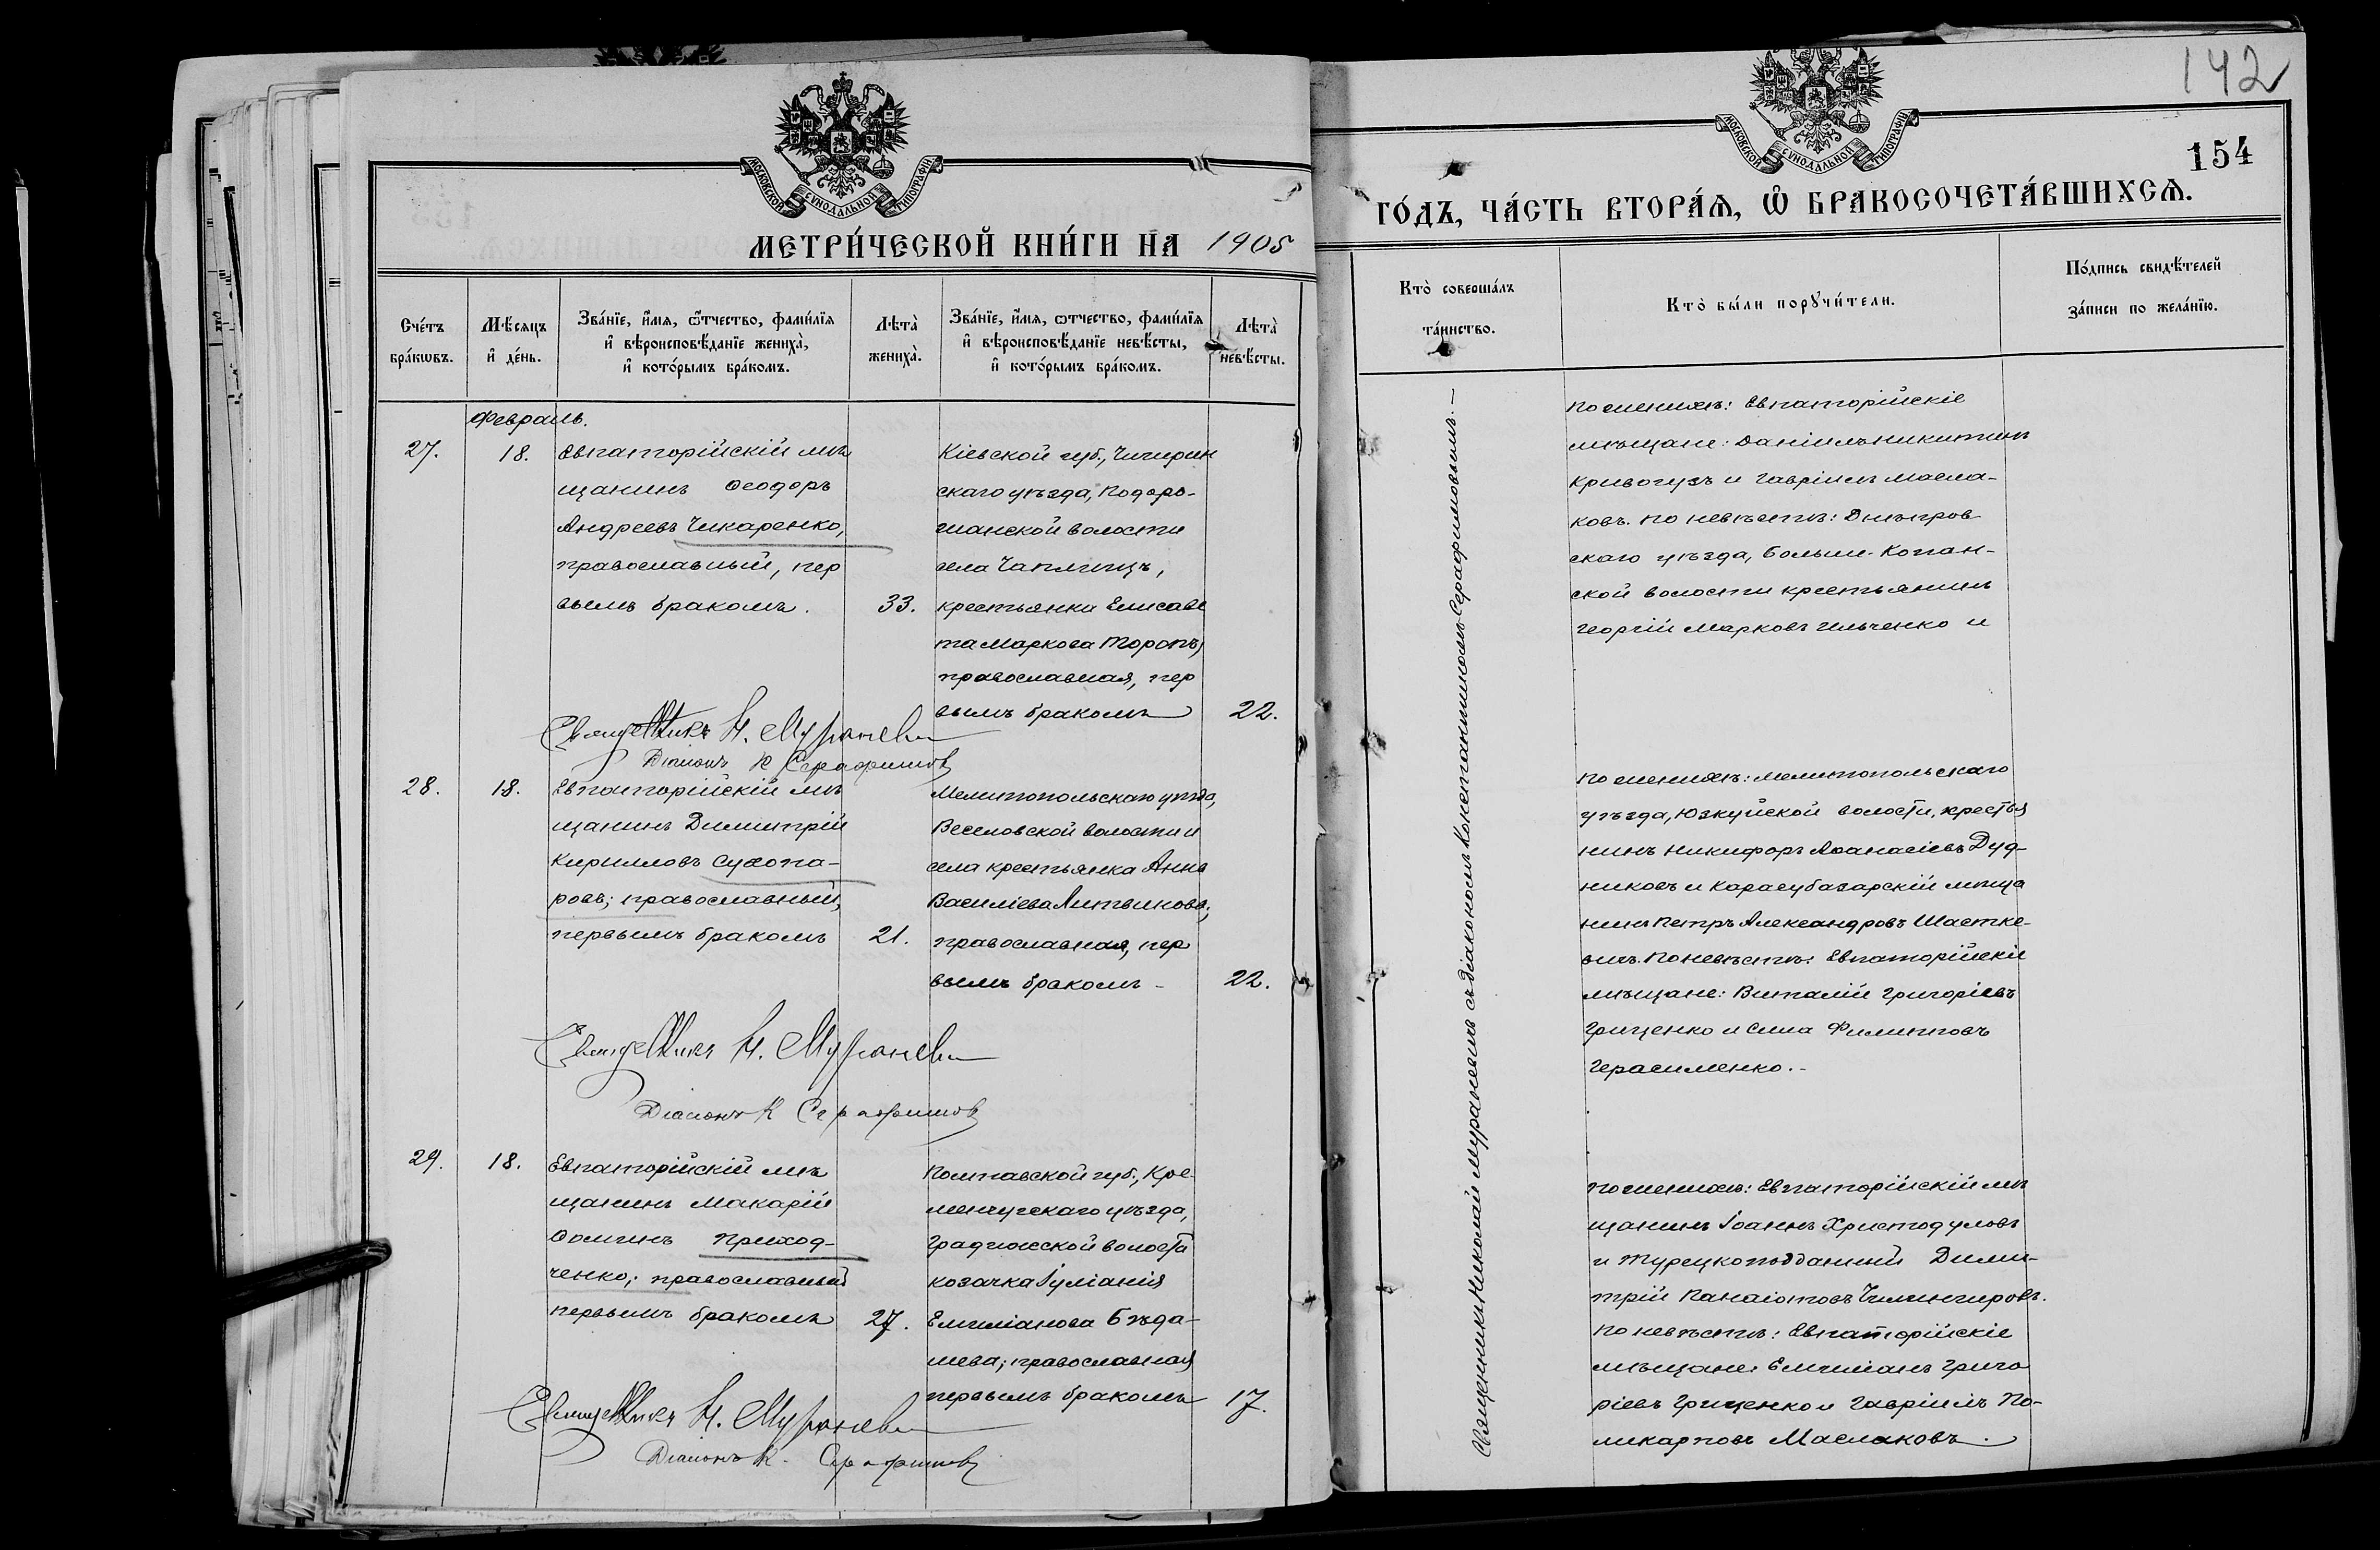 МОСКОВСКОЙ СѴНОДАЛЬНОЙ ТИПОГРАФІИ
МЕТРИ́ЧЕСКОЙ КНИ́ГИ НА 1905
Сче́тъ бра́кѡвъ.
Мѣ́сяцъ и҆ де́нь.
Зва́нїе, и҆́мѧ, ѻ҆́тчество, фами́лїѧ
и҆ вѣроисповѣ́данїе жениха̀,
и҆ кото́рымъ бра́комъ.
Лѣта̀ жениха̀.
Зва́нїе, и҆́мѧ, ѻ҆тчество, фами́лїѧ
и҆ вѣроисповѣ́данїе невѣ́сты,
и҆ кото́рымъ бра́комъ.
Лѣта̀ невѣ́сты.
Февраль.
27.
18.
Евпаторійскій мѣ
щанинъ Ѳеодоръ
Андреевъ Чикаренко,
православный, пер
вымъ бракомъ.
33.
Кіевской губ., Чигирин
скаго уѣзда,
волости
села Чаплищъ,
крестьянка Елисаве
та Маркова
православная, пер
вымъ бракомъ
22.
Священникъ Н. Мураневичъ
Діаконъ К Серафимовъ
28.
18.
Евпаторійскій мѣ
щанинъ Димитрій
Кирилловъ Сухопа-
ровъ; православный,
первымъ бракомъ
21.
Мелитопольскаго уѣзда,
Веселовской волости и
села крестьянка Анна
Василіева Литвинова;
православная, пер
вымъ бракомъ -
22.
Священникъ Н. Мураневичъ
Діаконъ К Серафимовъ
29.
18.
Евпаторійскій мѣ
щанинъ Макарій
Ѳоминъ Приход-
ченко; православный
первымъ бракомъ
27.
Полтавской губ., Кре-
менчугскаго уѣзда,
Градижской волости
козачка Іуліанія
Емиліанова Бѣда-
шева; православная
первымъ бракомъ
17.
Священникъ Н. Мураневичъ
Діаконъ К. Серафимовъ
142
154
МОСКОВСКОЙ СѴНОДАЛЬНОЙ ТИПОГРАФІИ
ГО́ДЪ, ЧА́СТЬ ВТОРА́Ѧ, Ѽ БРАКОСОЧЕТА́ВШИХСѦ.
Кто̀ соверша́лъ
та́инство.
Кто̀ бы́ли порꙋчи́тели.
По́дпись свидѣ́телей
за́писи по жела́нїю.
Священникъ Николай Мураневичъ съ діакономъ Константиномъ Серафимовымъ. —
По женихѣ: Евпаторійскіе
мѣщане: Даніилъ Никитинъ
Кривогузъ и Гавріилъ Масла-
ковъ. По невѣстѣ: Днѣпров
скаго уѣзда, Больше-Копан-
ской волости крестьянинъ
Георгій Марковъ Ильченко и
По женихѣ: Мелитопольскаго
уѣзда, Юзкуйской волости, крестья
нинъ Никифоръ Аѳанасіевъ Дуд-
никовъ и Карасубазарскій мѣща
нинъ Петръ Александровъ Шастке-
вичъ. По невѣстѣ: Евпаторійскіе
мѣщане: Виталій Григоріевъ
Гриценко и Сила Филипповъ
Герасименко. -
По женихѣ: Евпаторійскій мѣ
щанинъ Іоаннъ Христодуловъ
и Турецкоподданный Дими-
трій Панаіотовъ Чилингировъ.
По невѣстѣ: Евпаторійскіе
мѣщане: Емиліанъ Григо
ріевъ Гриценко и Гавріилъ По-
ликарповъ Маслаковъ.